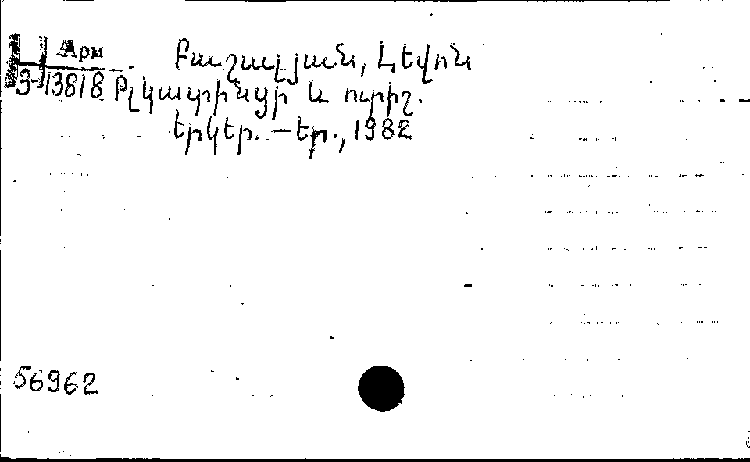 Арм Բաշալյան, Լեվոն
3-13818 Թլկատինցի և ուրիշ.
Երկեր. — Եր., 1982
56962